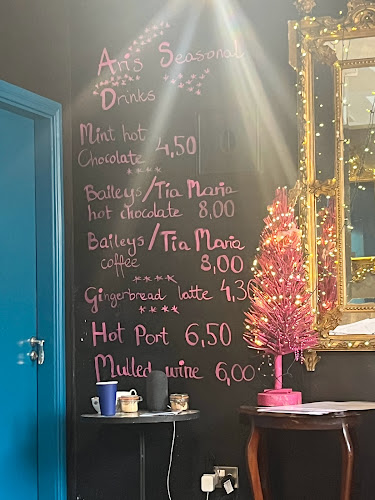 Aris Seasonal
Drinks
Mint hot
Chocolate 4,50
****
Baileys/Tia Maria
hot chocolate 8,00
Baileys/Tia Maria
coffee 8,00
****
Gingerbread latte 4,30
****
Hot Port 6,50
Mulled wine 6,00